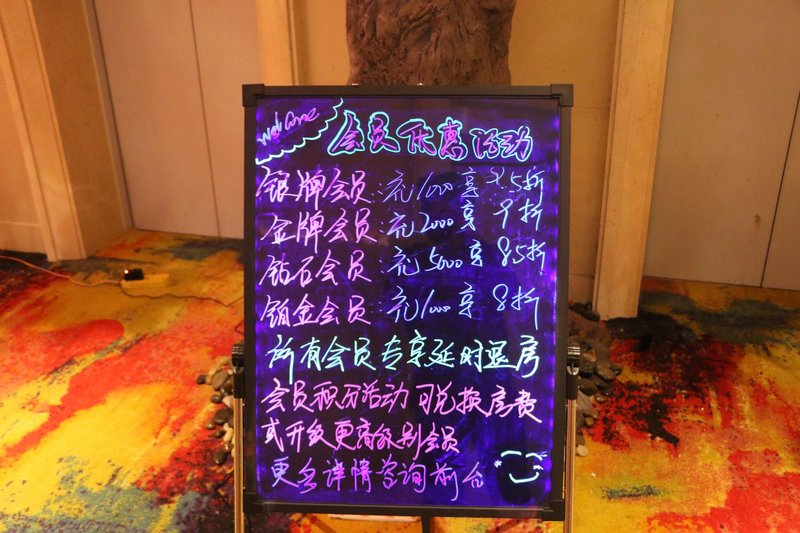 Welcome
会员优惠活动
银牌会员:充1000享9.5折
金牌会员:充2000享9折
钻石会员:充5000享8.5折
铂金会员:充1000享8折
所有会员专享延时退房
会员积分活动可兑换房费
或升级更高级别会员
更多详情咨询前台